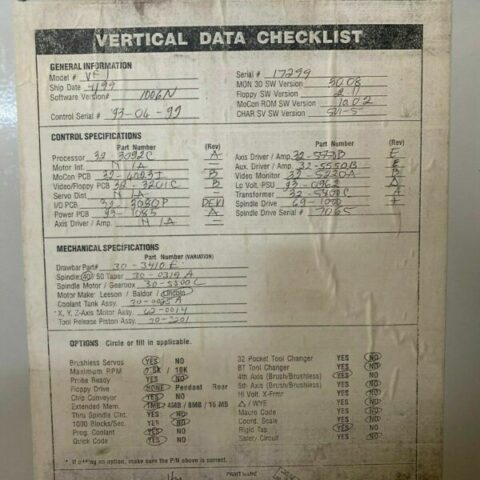 VERTICAL DATA CHECKLIST
GENERAL INFORMATION
Model # VF1
Ship Date 4/99
Software Version# 10.06N
Control Serial # 93-04-99
Serial # 17299
MON 30 SW Version
Floppy SW Version
MoCon ROM SW Version 10.02
CHAR SV SW Version
CONTROL SPECIFICATIONS
Part Number (Rev)
Processor 32-3092C A
Motor Int. N/A
MoCon PCB B
Video/Floppy PCB 32-3201C B
Servo Dist. N/A
I/O PCB
Power PCB A
Axis Driver / Amp. N/A
Part Number (Rev)
Axis Driver / Amp. E
Aux. Driver / Amp. 32-5550B E
Video Monitor 32-5230A B
Lo Volt. PSU A
Transformer A
Spindle Drive 69-1000
Spindle Drive Serial # 7065
MECHANICAL SPECIFICATIONS
Part Number (VARIATION)
Drawbar Part# 30-3410E
Spindle: 40 / 50 Taper 30-0319A
Spindle Motor / Gearbox
Motor Make: Leeson / Baldor / Lincoln
Coolant Tank Assy.
* X, Y, Z-Axis Motor Assy. 62-0014
Tool Release Piston Assy. 30-3201
OPTIONS Circle or fill in applicable.
Brushless Servos YES NO
Maximum RPM 7.5K / 10K
Probe Ready YES NO
Floppy Drive NONE Pendant Rear
Chip Conveyor YES NO
Extended Mem. 1MB / 4MB / 8MB / 16 MB
Thru Spindle Clnt. YES NO
1000 Blocks/Sec. YES NO
Prog. Coolant YES NO
Quick Code YES NO
32 Pocket Tool Changer YES NO
BT Tool Changer YES NO
4th Axis (Brush/Brushless) YES NO
5th Axis (Brush/Brushless) YES NO
16 Volt X-Frmr YES NO
Δ / WYE YES NO
Macro Code YES NO
Coord. Scale YES NO
Rigid Tap YES NO
Safety Circuit YES NO
* If adding an option, make sure the P/N above is correct.
PRINT NAME